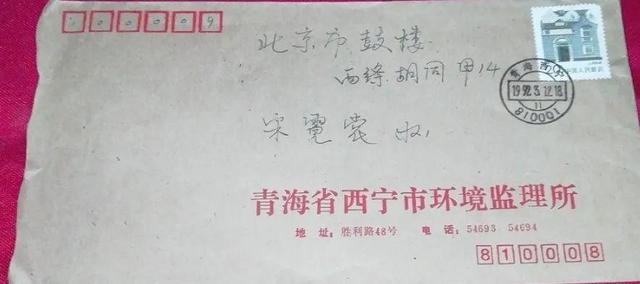 100009
北京市鼓楼
西绦胡同甲14
宋霓裳收
青海西宁
1992.3.12.18
11
810001
青海省西宁市环境监理所
地 址:胜利路48号 电 话:54693 54694
810008